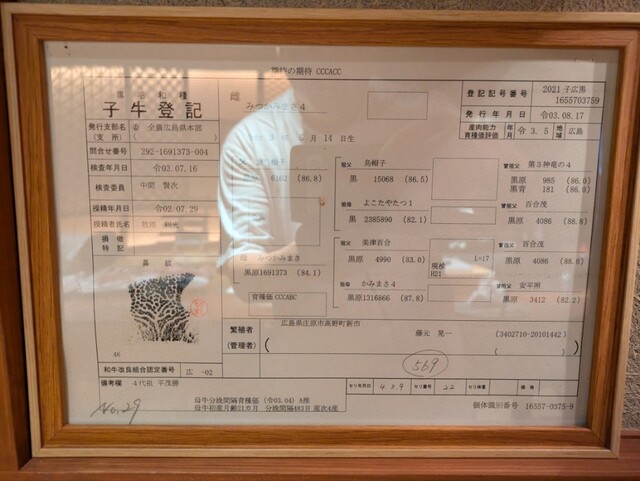 期待の期待 CCCACC
黒毛和種
子牛登記
雌
みつかみまさ4
登記記号番号 2021子広黒 1655703759
発行年月日 令03.08.17
産肉能力育種価評価 年月 令3.5 地域 広島
発行支部名(支所) 委 全畜広島県本部
( )
問合せ番号 292-1691373-004
検査年月日 令03.07.16
検査委員 中間 賢次
授精年月日 令02.07.29
授精者氏名
損徴特記
鼻紋
14日生
帽子
6162 (86.8)
母
みつかみまさ
黒原1691373 (84.1)
育種価 CCCABC
祖父 烏帽子
黒 15068 (86.5)
祖母 よこたやたつ1
黒 2385890 (82.1)
祖父 美津百合
黒原 4990 (83.0)
祖母 かみまさ4
黒原1316866 (87.8)
現検 H21 L=17
曾祖父 第3神竜の4
黒原 985 (86.0)
黒青 181 (86.0)
曾祖父 百合茂
黒原 4086 (88.8)
曾祖父 百合茂
黒原 4086 (88.8)
曾祖父 安平照
黒原 3412 (82.2)
46
広島県庄原市高野町新市
繁殖者 藤元 晃一 (3402710-20101442)
(管理者) ( )
569
和牛改良組合認定番号 広 -02
備考欄 4代祖 平茂勝
セリ年月日 4 3 9 セリ番号 22 セリ体重 価格
No,29
母牛分娩間隔育種価(令03.04) A推
母牛初産月齢21カ月 分娩間隔483日 産次4産
個体識別番号 16557-0375-9